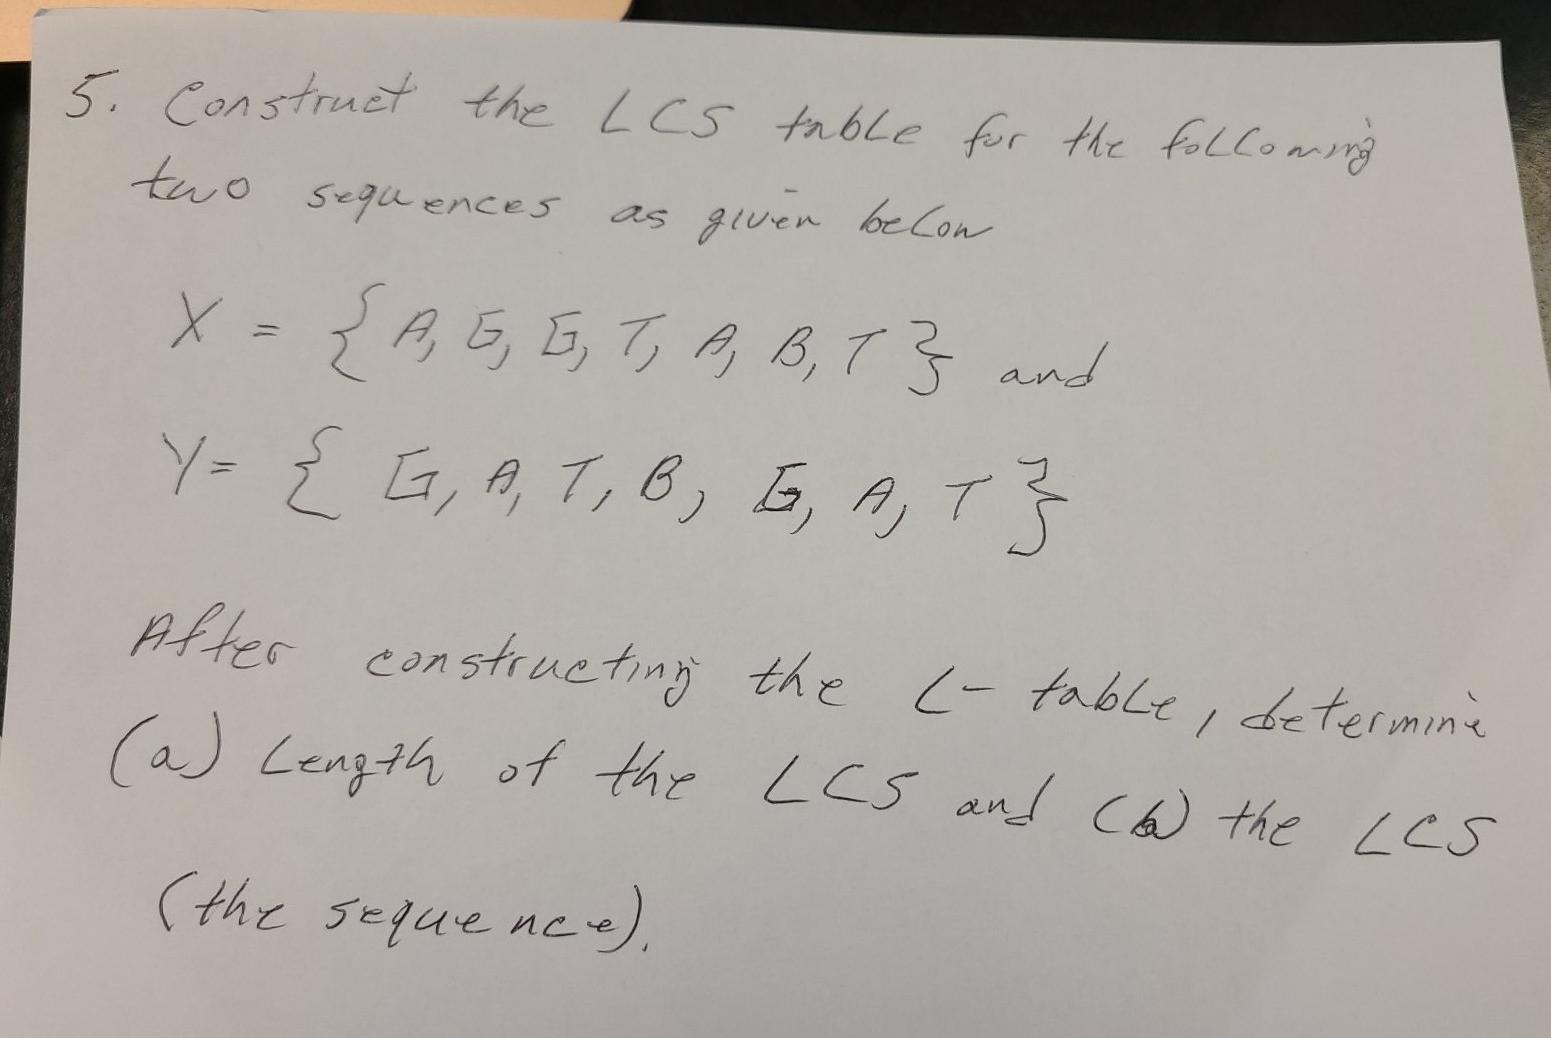 5. Construct the LCS table for the following
two sequences as given below
X = { A, G, G, T, A, B, T } and
Y = { G, A, T, B, G, A, T }
After constructing the L- table, determine
(a) Length of the LCS and (b) the LCS
(the sequence).